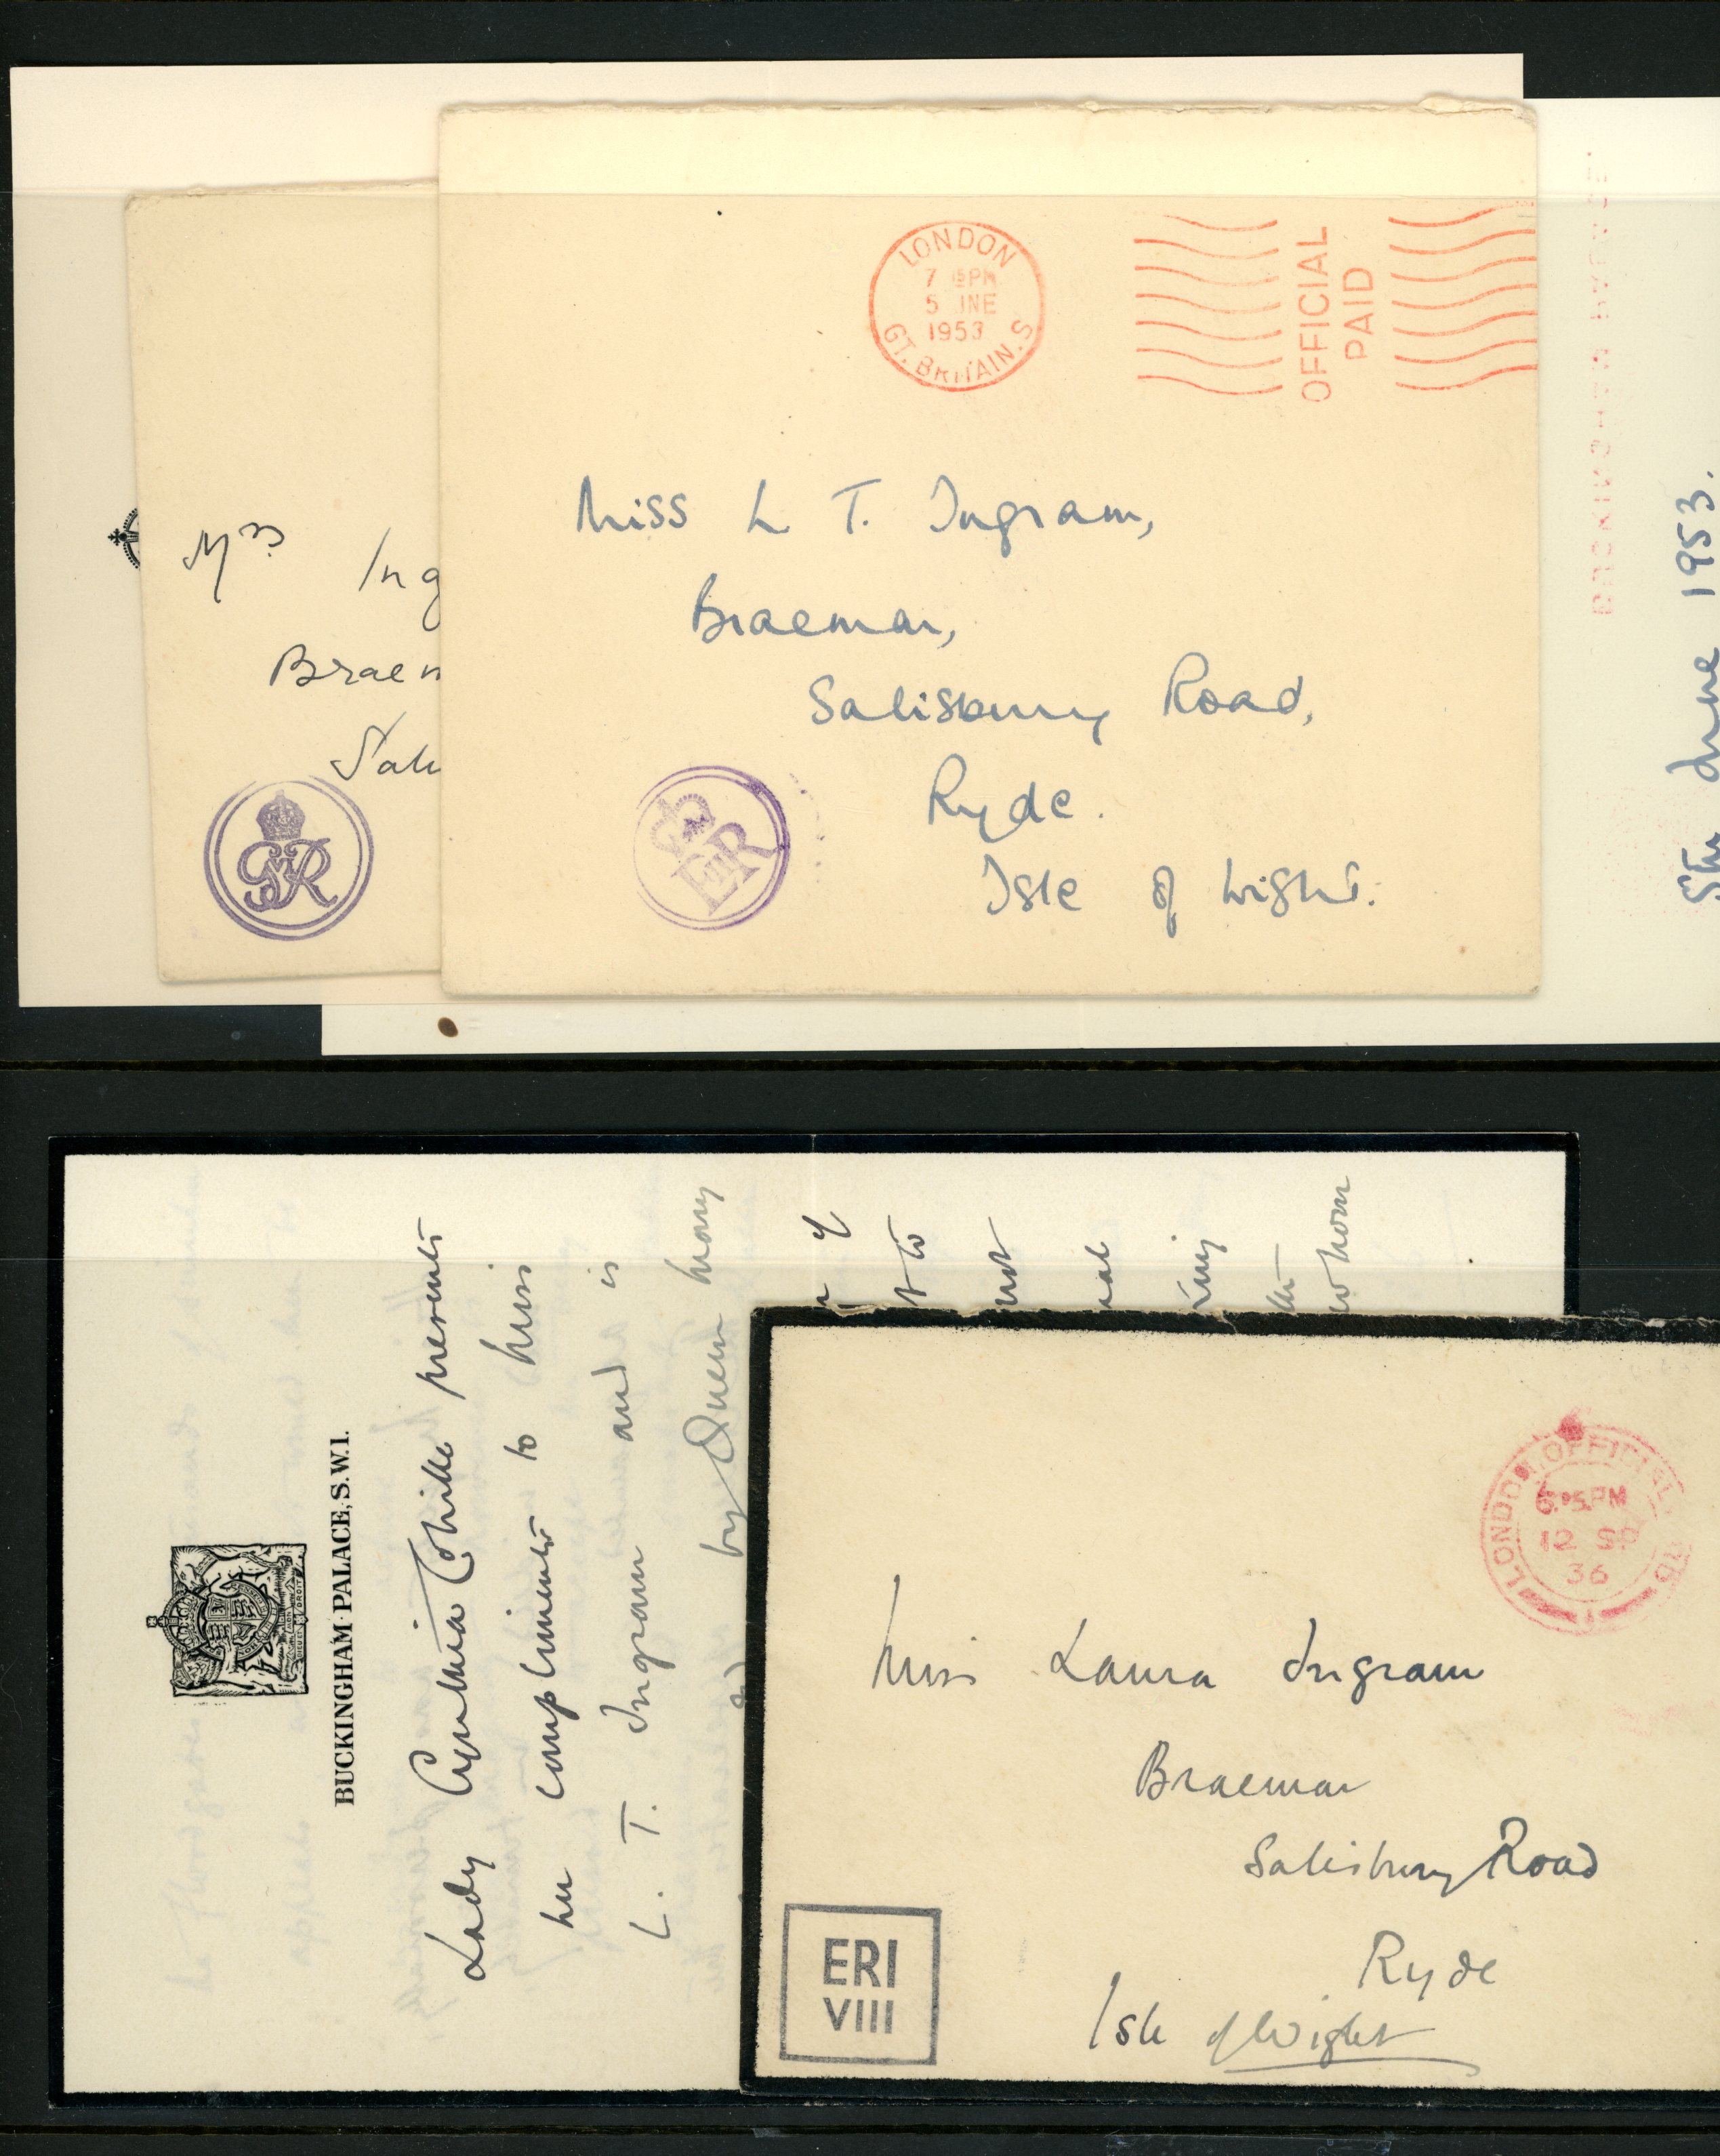 LONDON
7 15PM
5 JNE
1953
GT. BRITAIN. S
OFFICIAL
PAID
Miss L T. Ingram,
Braemar,
Salisbury Road,
Ryde.
Isle of Wight.
EIIR
Mrs Ing
Braem
Sali
GVIR
BUCKINGHAM PALACE
5th June 1953.
BUCKINGHAM PALACE, S.W.1.
Lady Cynthia Colville presents
her compliments to Miss
L. T. Ingram and is
by Queen Mary
of
to
not
King
whom
LONDON OFFICIAL PAID
6.15PM
12 SP
36
1
Miss Laura Ingram
Braemar
Salisbury Road
Ryde
Isle of Wight
ERI
VIII